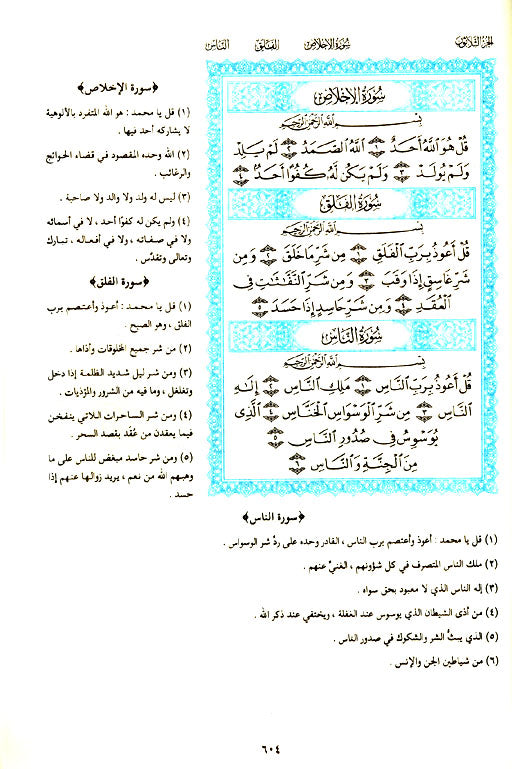 الجزء الثلاثون
سُورَةُ الإِخْلَاصِ
الفَلَقِ
النَّاسِ
سُورَةُ الإِخْلَاصِ
بِسْمِ اللَّهِ الرَّحْمَٰنِ الرَّحِيمِ
قُلْ هُوَ ٱللَّهُ أَحَدٌ ١ ٱللَّهُ ٱلصَّمَدُ ٢ لَمْ يَلِدْ
وَلَمْ يُولَدْ ٣ وَلَمْ يَكُن لَّهُۥ كُفُوًا أَحَدٌ ٤
سُورَةُ الفَلَقِ
بِسْمِ اللَّهِ الرَّحْمَٰنِ الرَّحِيمِ
قُلْ أَعُوذُ بِرَبِّ ٱلْفَلَقِ ١ مِن شَرِّ مَا خَلَقَ ٢ وَمِن
شَرِّ غَاسِقٍ إِذَا وَقَبَ ٣ وَمِن شَرِّ ٱلنَّفَّٰثَٰتِ فِى
ٱلْعُقَدِ ٤ وَمِن شَرِّ حَاسِدٍ إِذَا حَسَدَ ٥
سُورَةُ النَّاسِ
بِسْمِ اللَّهِ الرَّحْمَٰنِ الرَّحِيمِ
قُلْ أَعُوذُ بِرَبِّ ٱلنَّاسِ ١ مَلِكِ ٱلنَّاسِ ٢ إِلَٰهِ
ٱلنَّاسِ ٣ مِن شَرِّ ٱلْوَسْوَاسِ ٱلْخَنَّاسِ ٤ ٱلَّذِى
يُوَسْوِسُ فِى صُدُورِ ٱلنَّاسِ ٥
مِنَ ٱلْجِنَّةِ وَٱلنَّاسِ ٦
﴿سورة الإخلاص﴾
(١) قل يا محمد : هو الله المتفرد بالألوهية
لا يشاركه أحد فيها .
(٢) الله وحده المقصود في قضاء الحوائج
والرغائب .
(٣) ليس له ولد ولا والد ولا صاحبة .
(٤) ولم يكن له كفوًا أحد ، لا في أسمائه
ولا في صفاته ، ولا في أفعاله ، تبارك
وتعالى وتقدّس .
﴿سورة الفلق﴾
(١) قل يا محمد : أعوذ وأعتصم برب
الفلق ، وهو الصبح .
(٢) من شر جميع المخلوقات وأذاها .
(٣) ومن شر ليل شديد الظلمة إذا دخل
وتغلغل ، وما فيه من الشرور والمؤذيات .
(٤) ومن شر الساحرات اللاتي ينفخن
فيما يعقدن من عُقَد بقصد السحر .
(٥) ومن شر حاسد مبغض للناس على ما
وهبهم الله من نعم ، يريد زوالها عنهم إذا
حسد .
﴿سورة الناس﴾
(١) قل يا محمد : أعوذ وأعتصم برب الناس ، القادر وحده على ردّ شر الوسواس .
(٢) ملك الناس المتصرف في كل شؤونهم ، الغنيّ عنهم .
(٣) إله الناس الذي لا معبود بحق سواه .
(٤) من أذى الشيطان الذي يوسوس عند الغفلة ، ويختفي عند ذكر الله .
(٥) الذي يبثُّ الشر والشكوك في صدور الناس .
(٦) من شياطين الجن والإنس .
٦٠٤